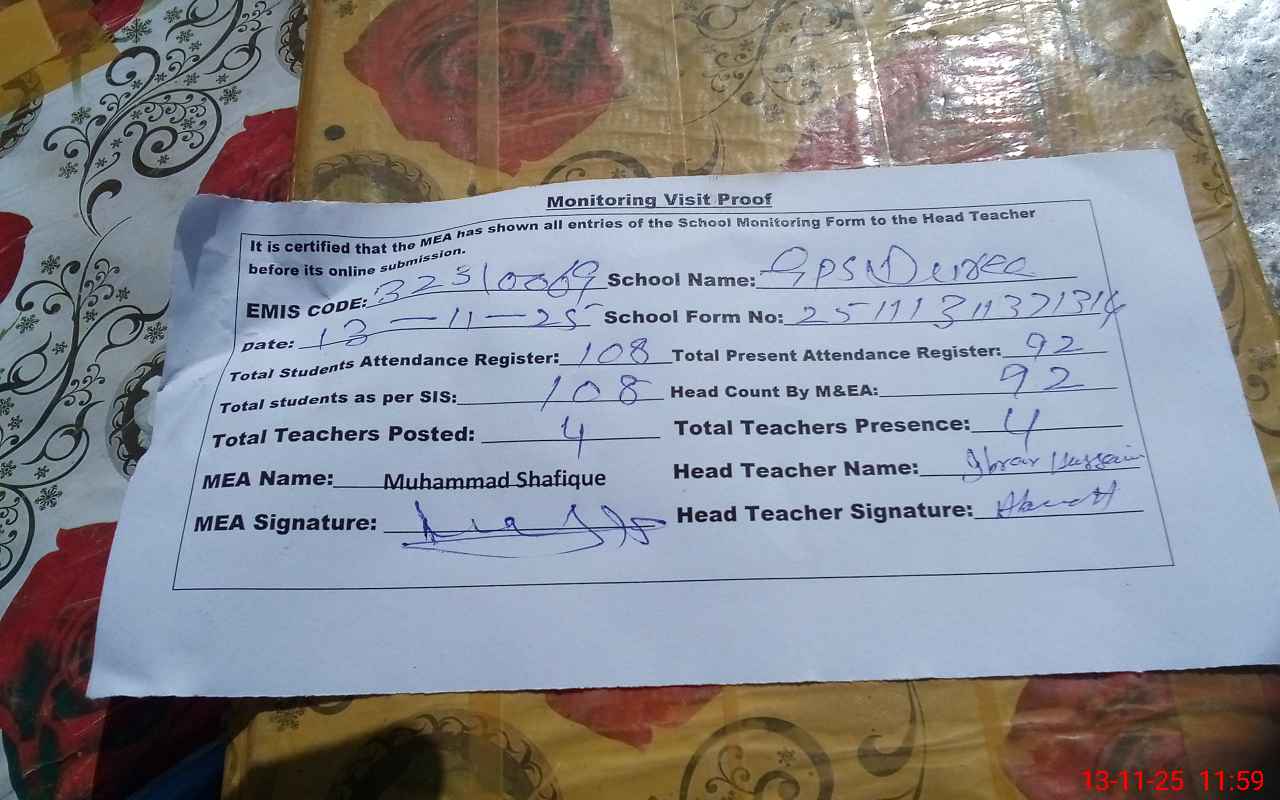 Monitoring Visit Proof
It is certified that the MEA has shown all entries of the School Monitoring Form to the Head Teacher
before its online submission.
EMIS CODE: 32510069 School Name: GPS
Date: 13-11-25 School Form No:
Total Students Attendance Register: 108 Total Present Attendance Register: 92
Total students as per SIS: 108 Head Count By M&EA: 92
Total Teachers Posted: 4 Total Teachers Presence: 4
MEA Name: Muhammad Shafique Head Teacher Name: Ibrar Hussain
MEA Signature: Head Teacher Signature:
13-11-25 11:59